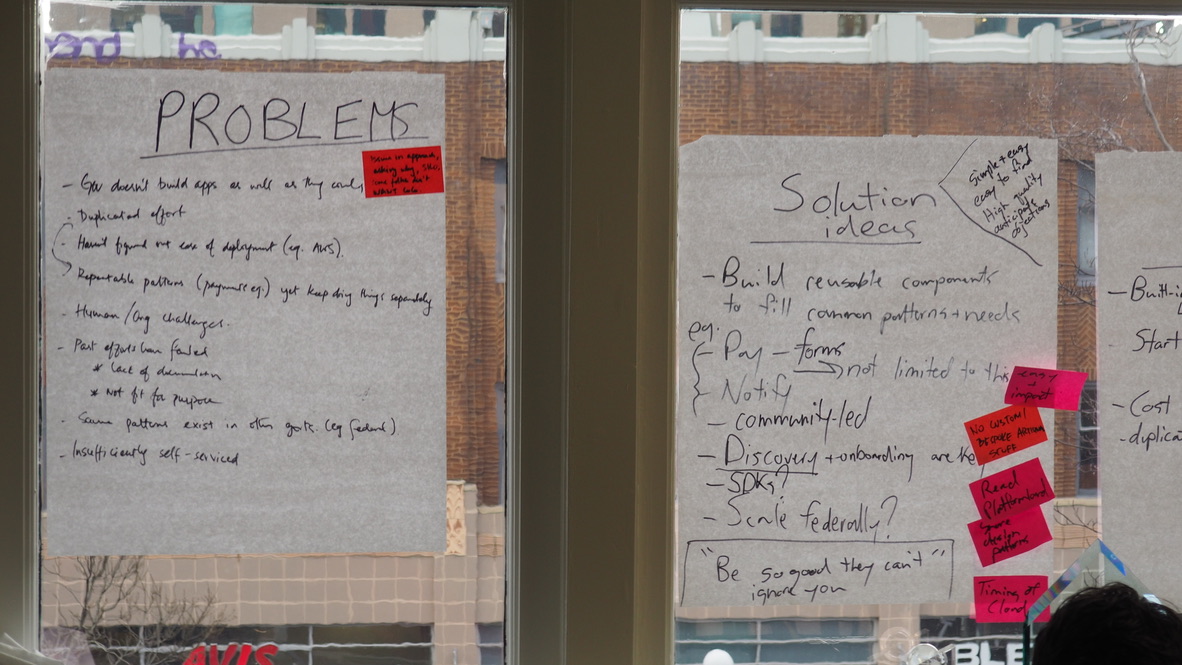 PROBLEMS
- Gov doesn't build apps as well as they could
- Duplicated effort
- Haven't figured out ease of deployment (eg. AWS).
- Repeatable patterns (payments eg.) yet keep doing things separately
- Human/Org challenges.
- Past efforts have failed
* Lack of documentation
* Not fit for purpose
- Same patterns exist in other govts. (eg federal)
- Insufficiently self-serviced
Solution
ideas
Simple + easy
easy to find
High quality
anticipate
objections
- Build reusable components
to fill common patterns + needs
eg.
- Pay - forms
not limited to this
- Notify
- community-led
- Discovery + onboarding are
- SDKs?
- Scale federally?
"Be so good they can't"
ignore you
easy
+
import
NO CUSTOM/
BESPOKE
STUFF
Read
Platformland
Share
design
patterns
Timing of
Cloud
- Built-i
Start
- Cost
- duplica
AVIS
BLE